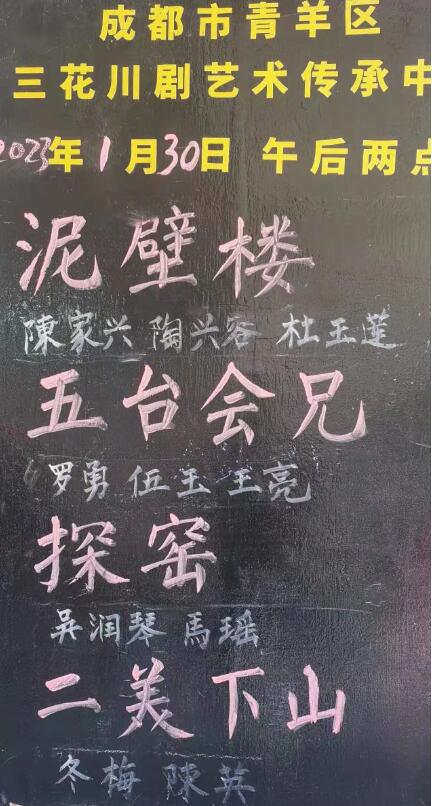 成都市青羊区
三花川剧艺术传承中
2023年1月30日 午后两点
泥壁楼
陳家兴 陶兴谷 杜玉莲
五台会兄
罗勇 伍玉 王亮
探窑
吴润琴 馬瑶
二美下山
冬梅 陳英